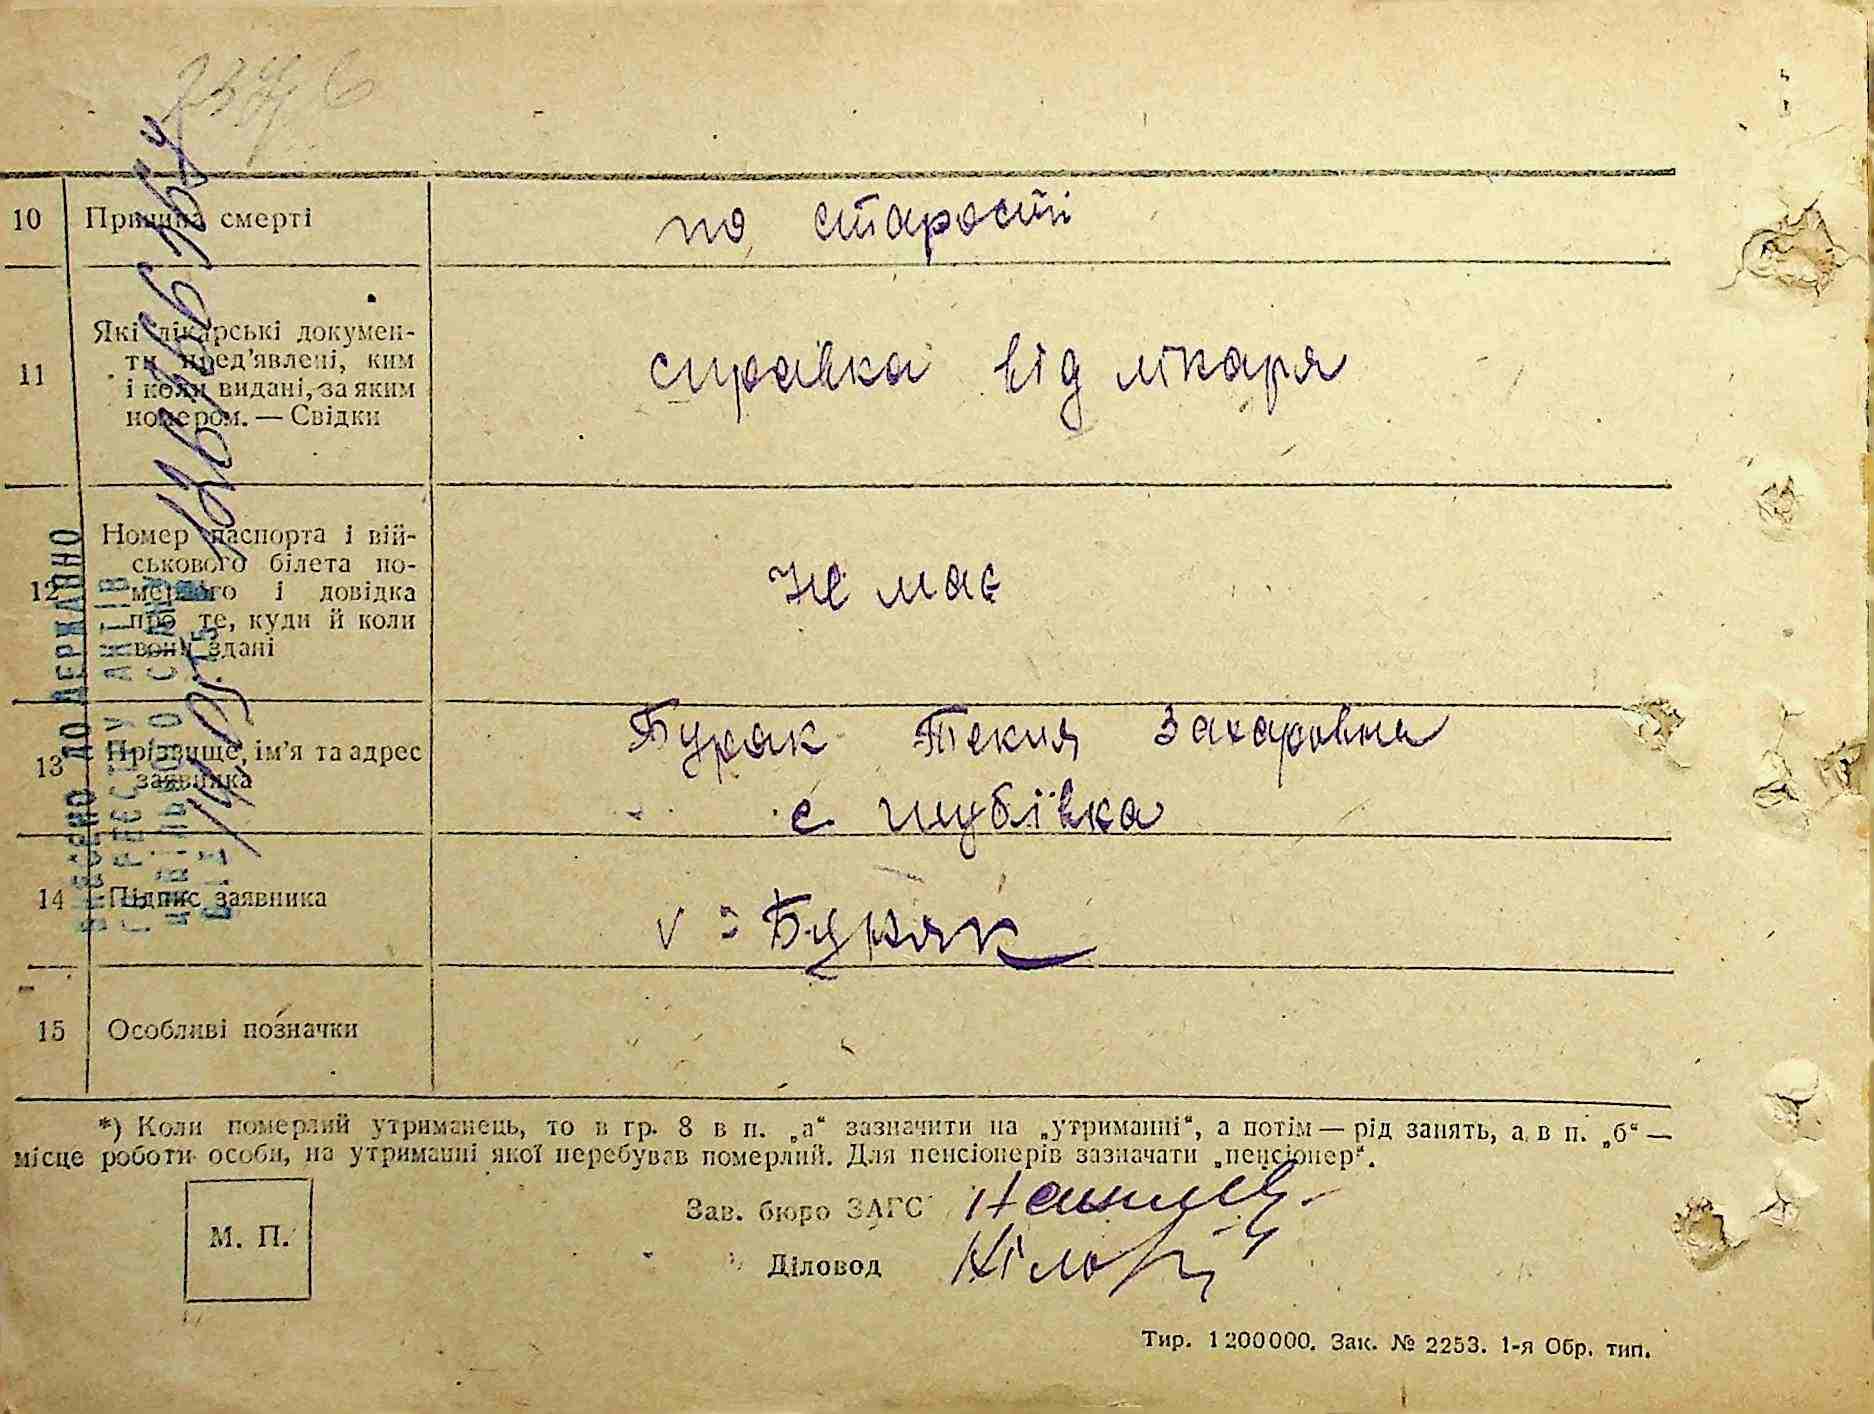 10 Причина смерті по старості
11 Які лікарські докумен-
ти пред'явлені, ким
і коли видані, за яким
номером. — Свідки
справка від лікаря
12 Номер паспорта і вій-
ськового білета по-
мерлого і довідка
про те, куди й коли
вони здані
не має
13 Прізвище, ім'я та адрес
заявника
Бурак Текля Захаровна
с.
14 Підпис заявника Буряк
15 Особливі позначки
*) Коли померлий утриманець, то в гр. 8 в п. „а“ зазначити на „утриманні“, а потім — рід занять, а в п. „б“ —
місце роботи особи, на утриманні якої перебував померлий. Для пенсіонерів зазначати „пенсіонер“.
М. П.
Зав. бюро ЗАГС
Діловод
Тир. 1200000. Зак. № 2253. 1-я Обр. тип.
ВНЕСЕНО ДО ДЕРЖАВНО
ГО РЕЄСТРУ АКТІВ
ЦИВІЛЬНОГО СТАНУ